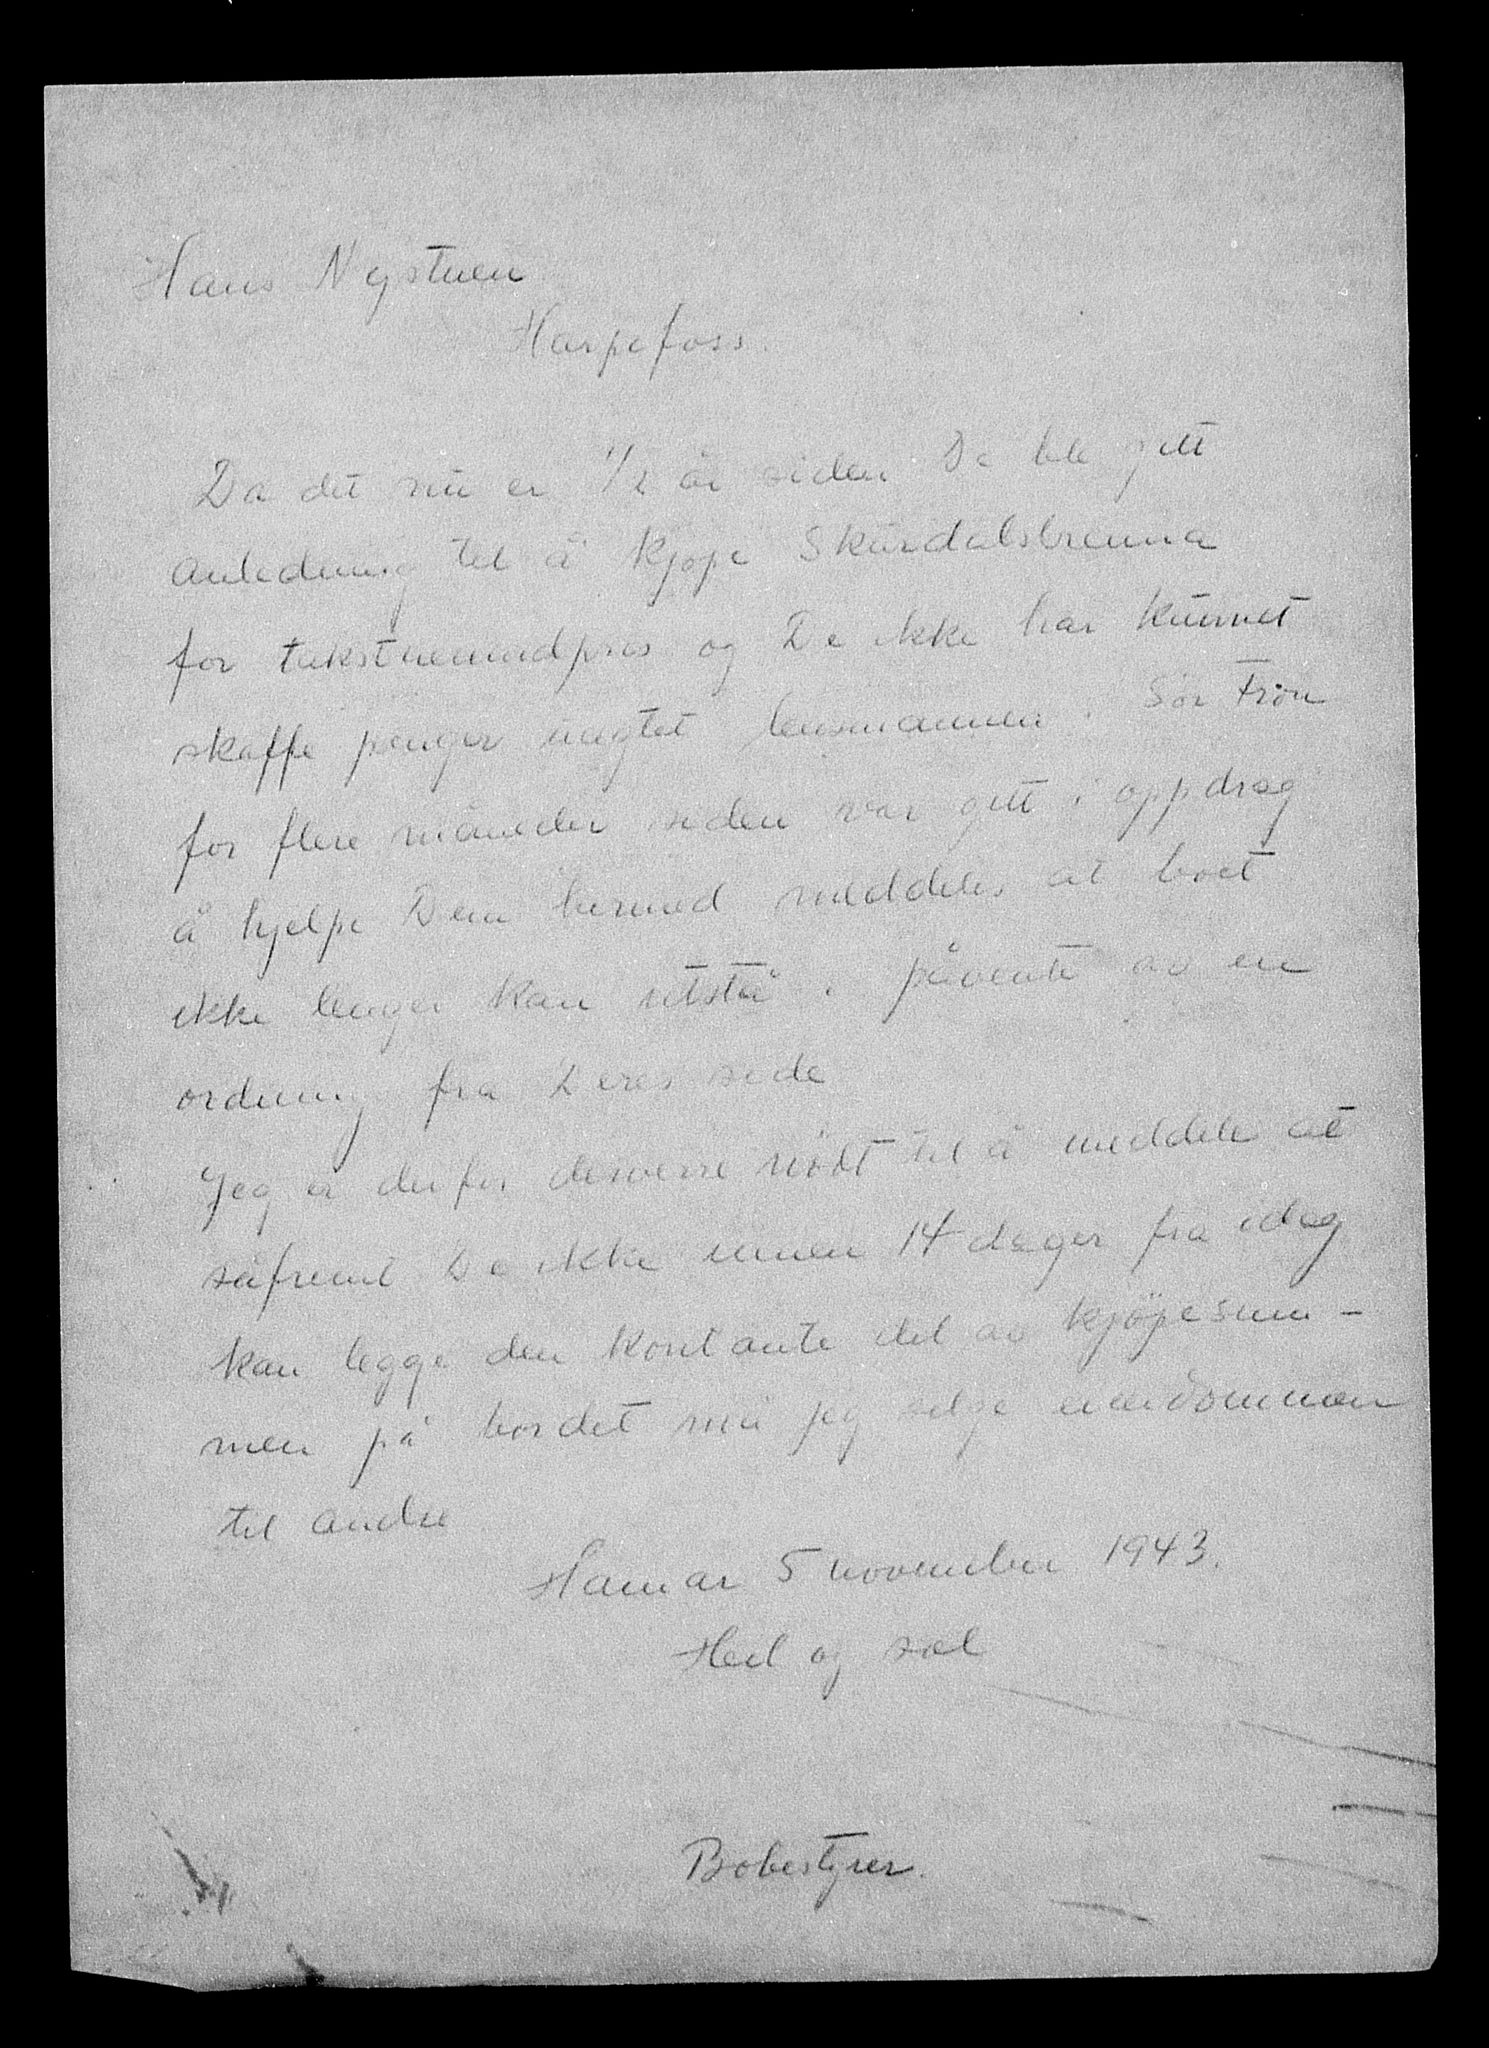 Hans Nystuen
Harpefoss.
Da det nu er 1/2 år siden De ble gitt
anledning til å kjøpe Skurdalsbrenna
for takstmenndpris og De ikke har kunnet
skaffe penger uagtet lensmannen i Sør Fron
for flere måneder siden var gitt i oppdrag
å hjelpe Dem hermed meddeles at boet
ikke lenger kan utstå i påvente av en
ordning fra Deres side
Jeg er derfor desverre nödt til å meddele at
såfremt De ikke innen 14 dager fra idag
kan legge den kontante del av kjöpesum-
men på bordet må jeg selge eiendommen
til andre
Hamar 5 november 1943.
Heil og sæl
Bobestyrer.